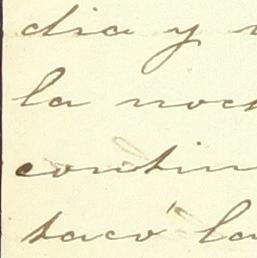 dia y
la noc
contin
tacó la